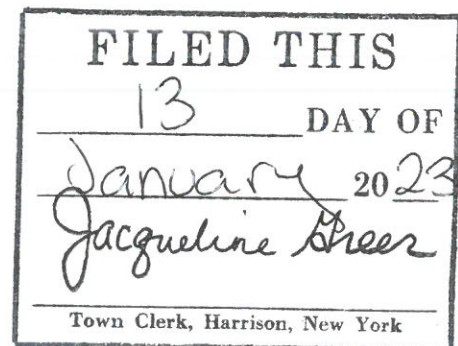 FILED THIS
13 DAY OF
January 2023
Jacqueline Greer
Town Clerk, Harrison, New York